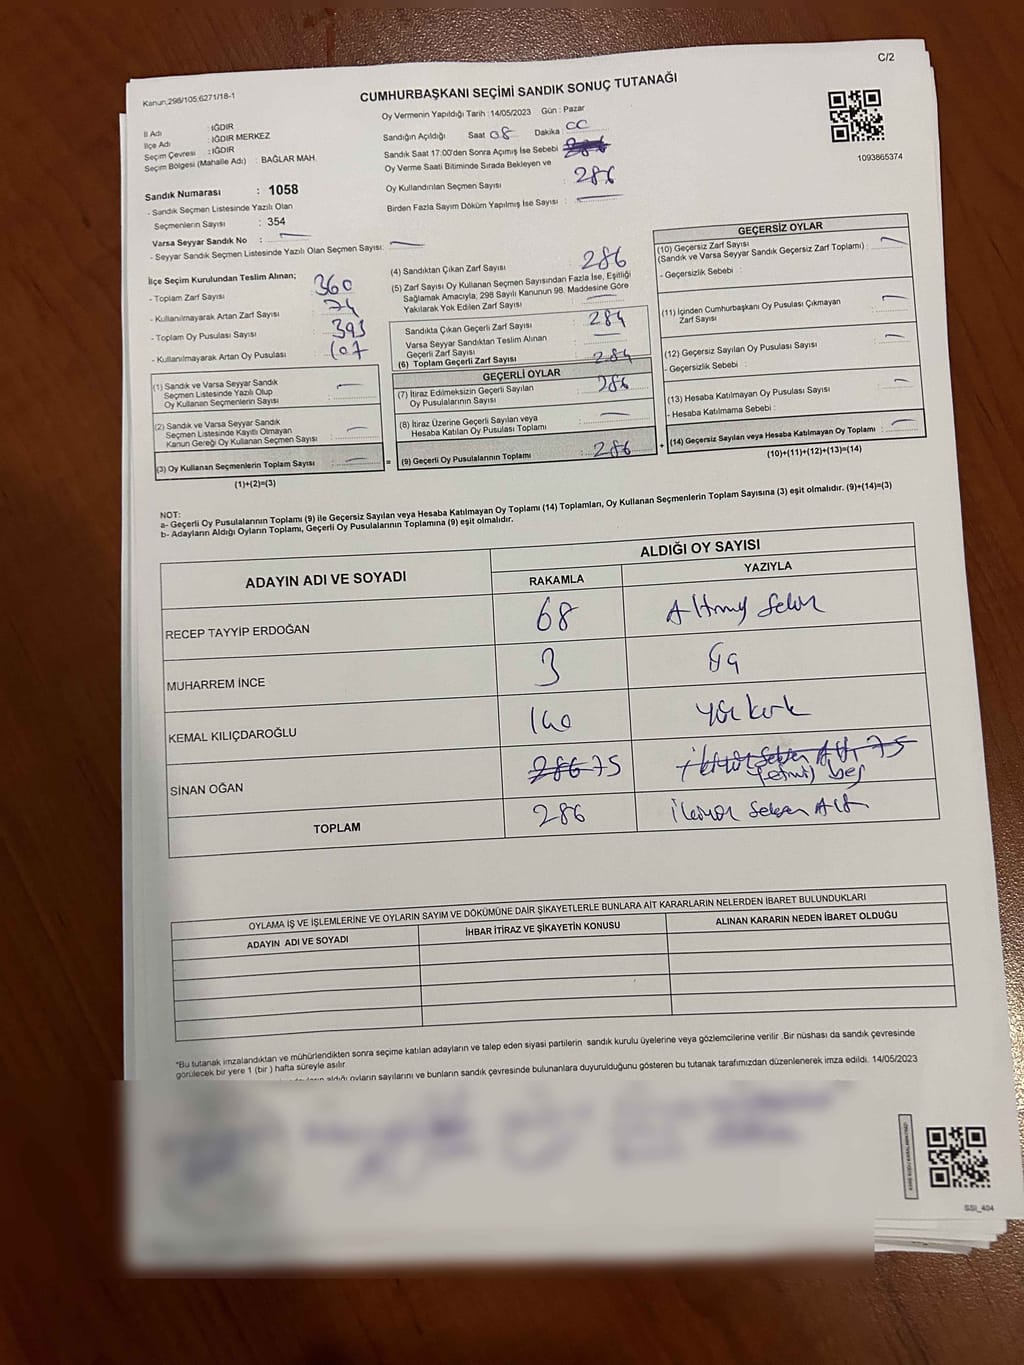 C/2
Kanun;298/105;6271/18-1
CUMHURBAŞKANI SEÇİMİ SANDIK SONUÇ TUTANAĞI
Oy Vermenin Yapıldığı Tarih :14/05/2023 Gün : Pazar
İl Adı : IĞDIR
İlçe Adı : IĞDIR MERKEZ
Seçim Çevresi : IĞDIR
Seçim Bölgesi (Mahalle Adı) : BAĞLAR MAH.
Sandığın Açıldığı Saat 08 Dakika :
Sandık Saat 17:00'den Sonra Açımış İse Sebebi
Oy Verme Saati Bitiminde Sırada Bekleyen ve
Oy Kullandırılan Seçmen Sayısı : 286
Birden Fazla Sayım Döküm Yapılmış İse Sayısı :
1093865374
Sandık Numarası : 1058
- Sandık Seçmen Listesinde Yazılı Olan
Seçmenlerin Sayısı : 354
Varsa Seyyar Sandık No :
- Seyyar Sandık Seçmen Listesinde Yazılı Olan Seçmen Sayısı:
İlçe Seçim Kurulundan Teslim Alınan;
- Toplam Zarf Sayısı : 360
- Kullanılmayarak Artan Zarf Sayısı : 74
- Toplam Oy Pusulası Sayısı : 393
- Kullanılmayarak Artan Oy Pusulası : 107
(1) Sandık ve Varsa Seyyar Sandık
Seçmen Listesinde Yazılı Olup
Oy Kullanan Seçmenlerin Sayısı :
(2) Sandık ve Varsa Seyyar Sandık
Seçmen Listesinde Kayıtlı Olmayan
Kanun Gereği Oy Kullanan Seçmen Sayısı :
(3) Oy Kullanan Seçmenlerin Toplam Sayısı :
(1)+(2)=(3)
(4) Sandıktan Çıkan Zarf Sayısı : 286
(5) Zarf Sayısı Oy Kullanan Seçmen Sayısından Fazla İse, Eşitliği
Sağlamak Amacıyla, 298 Sayılı Kanunun 98. Maddesine Göre
Yakılarak Yok Edilen Zarf Sayısı :
Sandıkta Çıkan Geçerli Zarf Sayısı :
Varsa Seyyar Sandıktan Teslim Alınan
Geçerli Zarf Sayısı :
(6) Toplam Geçerli Zarf Sayısı :
GEÇERLİ OYLAR
(7) İtiraz Edilmeksizin Geçerli Sayılan
Oy Pusulalarının Sayısı : 286
(8) İtiraz Üzerine Geçerli Sayılan veya
Hesaba Katılan Oy Pusulası Toplamı :
= (9) Geçerli Oy Pusulalarının Toplamı : 286
GEÇERSİZ OYLAR
(10) Geçersiz Zarf Sayısı
(Sandık ve Varsa Seyyar Sandık Geçersiz Zarf Toplamı) :
- Geçersizlik Sebebi :
(11) İçinden Cumhurbaşkanı Oy Pusulası Çıkmayan
Zarf Sayısı :
(12) Geçersiz Sayılan Oy Pusulası Sayısı :
- Geçersizlik Sebebi :
(13) Hesaba Katılmayan Oy Pusulası Sayısı :
- Hesaba Katılmama Sebebi :
+ (14) Geçersiz Sayılan veya Hesaba Katılmayan Oy Toplamı :
(10)+(11)+(12)+(13)=(14)
NOT:
a- Geçerli Oy Pusulalarının Toplamı (9) ile Geçersiz Sayılan veya Hesaba Katılmayan Oy Toplamı (14) Toplamları, Oy Kullanan Seçmenlerin Toplam Sayısına (3) eşit olmalıdır. (9)+(14)=(3)
b- Adayların Aldığı Oyların Toplamı, Geçerli Oy Pusulalarının Toplamına (9) eşit olmalıdır.
ADAYIN ADI VE SOYADI
ALDIĞI OY SAYISI
RAKAMLA
YAZIYLA
RECEP TAYYİP ERDOĞAN 68 Altmış Sekiz
MUHARREM İNCE 3 Üç
KEMAL KILIÇDAROĞLU 140 Yüz kırk
SİNAN OĞAN 286 75 İkiyüz Seksen Altı 75
Yetmiş beş
TOPLAM 286 İkiyüz Seksen Altı
OYLAMA İŞ VE İŞLEMLERİNE VE OYLARIN SAYIM VE DÖKÜMÜNE DAİR ŞİKAYETLERLE BUNLARA AİT KARARLARIN NELERDEN İBARET BULUNDUKLARI
ADAYIN ADI VE SOYADI
İHBAR İTİRAZ VE ŞİKAYETİN KONUSU
ALINAN KARARIN NEDEN İBARET OLDUĞU
*Bu tutanak imzalandıktan ve mühürlendikten sonra seçime katılan adayların ve talep eden siyasi partilerin sandık kurulu üyelerine veya gözlemcilerine verilir .Bir nüshası da sandık çevresinde
görülecek bir yere 1 (bir ) hafta süreyle asılır.
aldığı oyların sayılarını ve bunların sandık çevresinde bulunanlara duyurulduğunu gösteren bu tutanak tarafımızdan düzenlenerek imza edildi. 14/05/2023
SSI_404